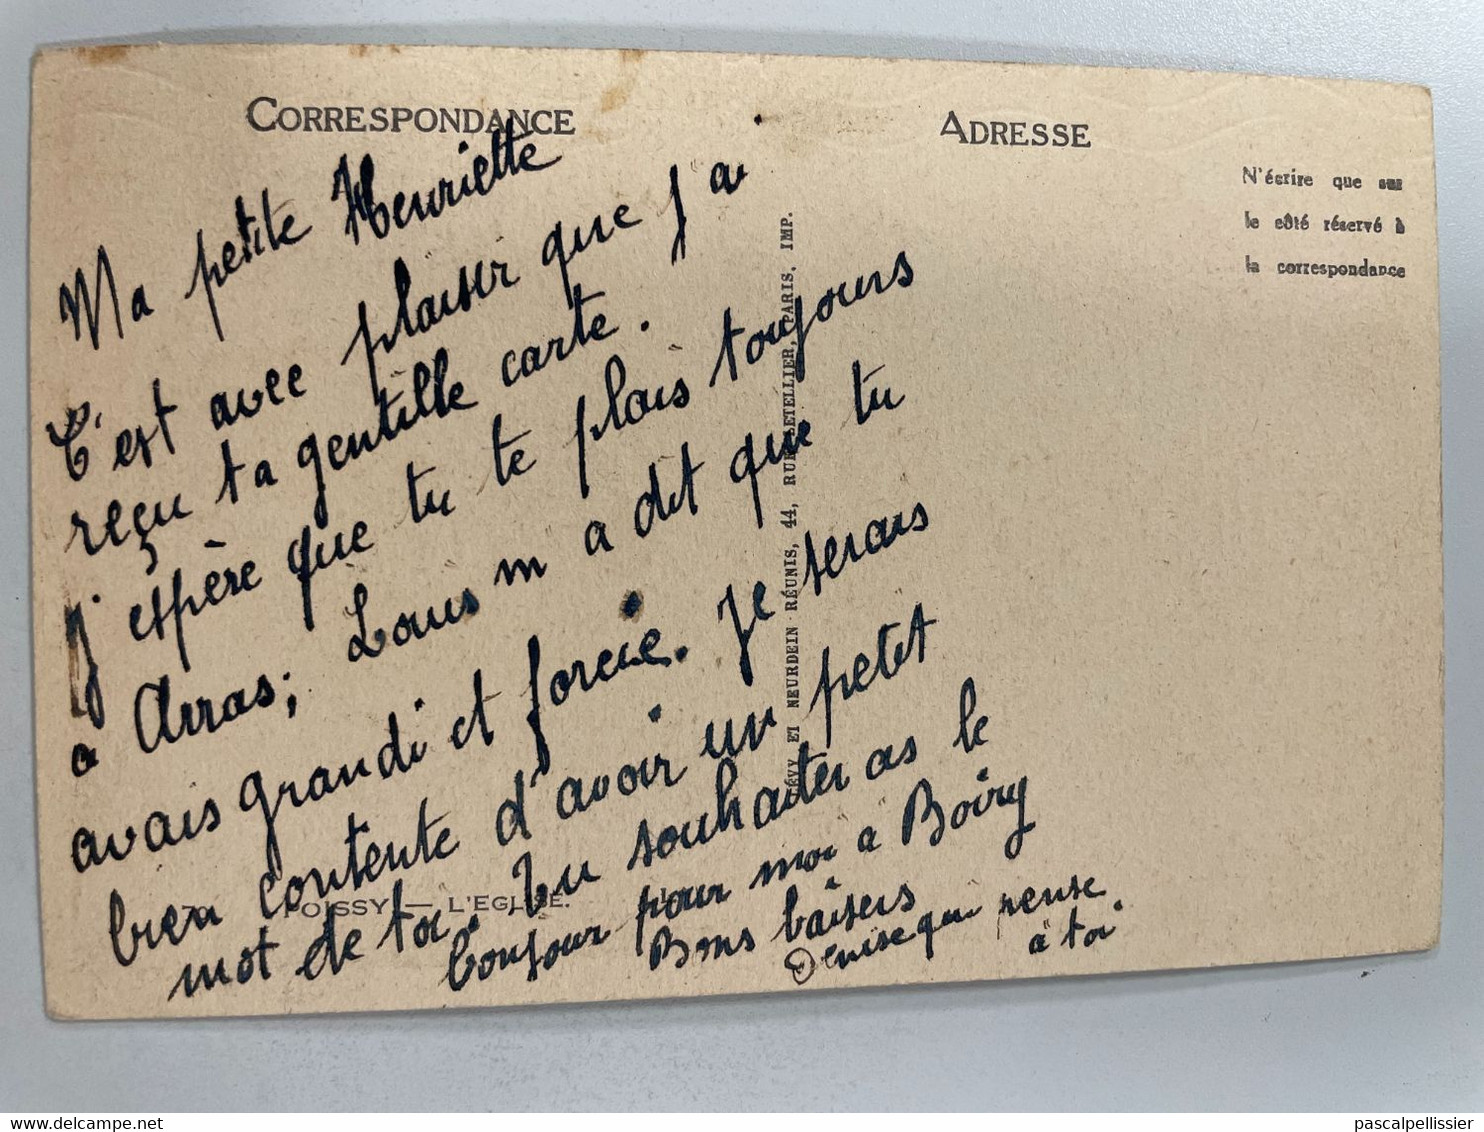 CORRESPONDANCE
ADRESSE
N'écrire que sur
le côté réservé à
la correspondance
Ma petite Henriette
C'est avec plaisir que j'a
reçu ta gentille carte.
j'espère que tu te plais toujours
a Arras; Louis m a dit que tu
avais grandi et forcie. Je serais
bien contente d'avoir un petit
mot de toi. Tu souhaiteras le
bonjour pour moi a Boiry
Bons baisers
Denise qui pense
à toi
POISSY — L'EGLISE.
LÉVY ET NEURDEIN RÉUNIS, 44, RUE LETELLIER, PARIS, IMP.
pascalpellissier